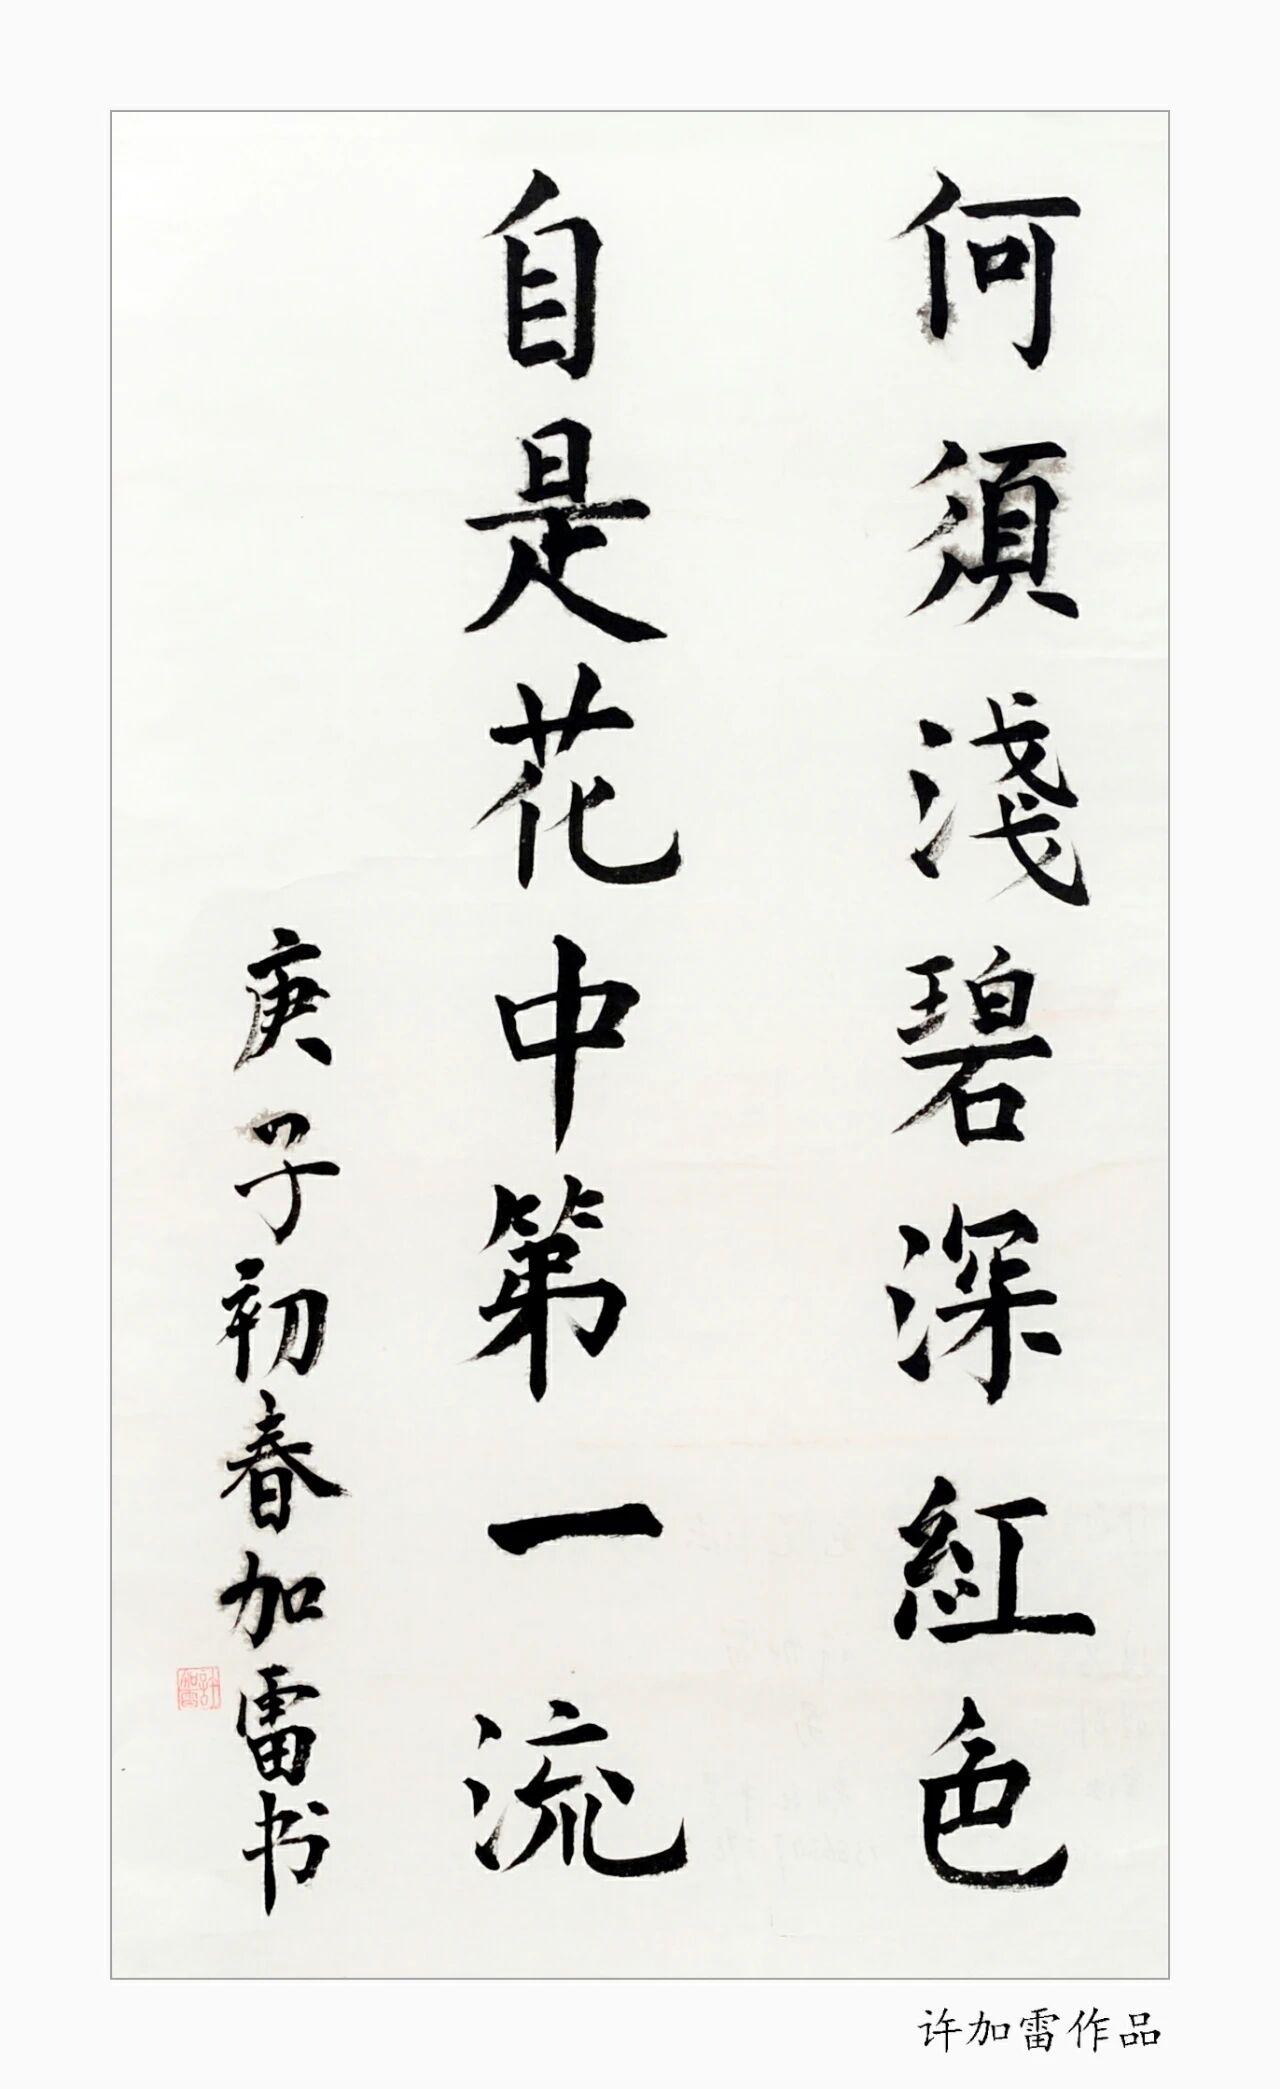 何須淺碧深紅色
自是花中第一流
庚子初春加雷书
許加雷
许加雷作品